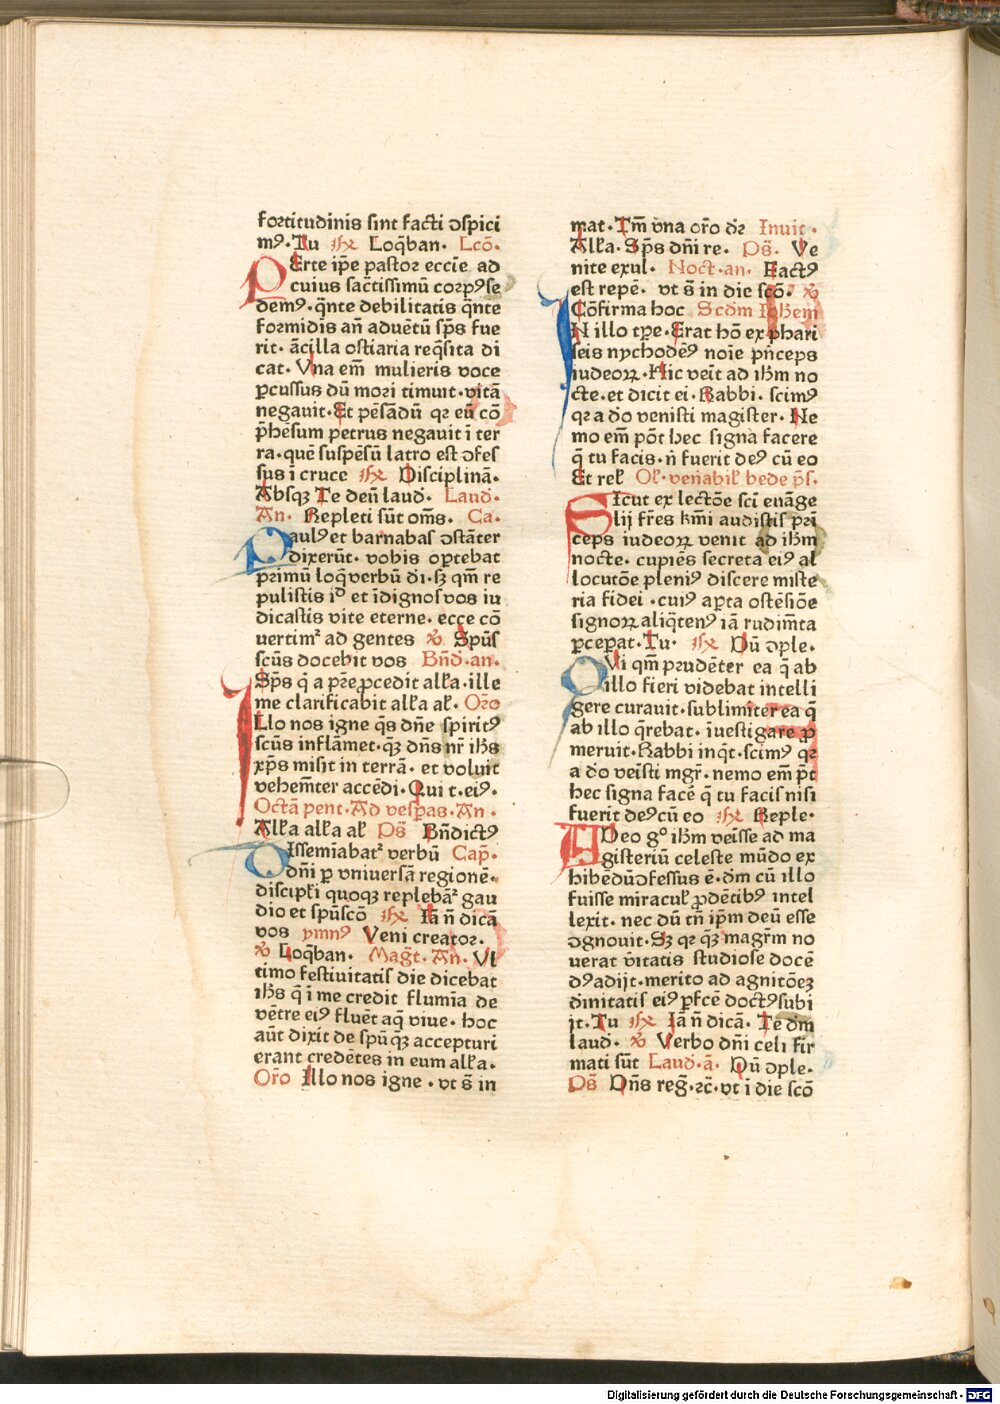 fortitudinis sint facti ↄspici
mꝰ. Tu ℟ Loq̄ban. Lcō.
PErte ip̄e pastor eccīe ad
cuius sac̄tissimū corpꝰse
demꝰ. q̄nte debilitatis q̄nte
formidis an̄ aduētū sp̄s fue
rit. ācilla ostiaria req̄sita di
cat. Vna em̄ mulieris voce
ꝑcussus dū mori timuit. vitā
negauit. Et pēsādū qꝛ eū cō
p̄hēsum petrus negauit ī ter
ra. quē suspēsū latro est ↄfes
sus ī cruce ℟ Disciplinā.
Absqꝫ Te den̄ laud. Laud.
An. Repleti sūt om̄s. Ca.
PAulꝰ et barnabas ↄstāter
dixerūt. vobis oꝑtebat
primū loq̄ verbū dī. sꝫ qm̄ re
pulistis id et īdignos vos iu
dicastis vite eterne. ecce cō
uertimᷣ ad gentes ℣ Spūs
scūs docebit vos Bn̄d. an.
Sp̄s q̄ a pr̄e ꝓcedit alľa. ille
me clarificabit alľa aľ. Oro
ILlo nos igne q̄s dn̄e spiritꝰ
scūs inflāmet. qꝫ dn̄s nr̄ ihs
xp̄s misit in terrā. et voluit
vehem̄ter accēdi. Qui t. eiꝰ.
Octā pent. Ad vesp̄as. An.
Alľa alľa aľ Ps̄ Bn̄dictꝰ
DIssemiabatᷣ verbū Cap̄.
dn̄i ꝑ vniuersā regionē.
discipľi quoqꝫ replebāᷣ gau
dio et spūscō ℟ Iā n̄ dicā
vos ymnꝰ Veni creator.
℣ Loq̄ban. Magt̄. An. Vl
timo festiuitatis die dicebat
ihs q̄ ī me credit flumīa de
vētre eiꝰ fluēt aq̄ viue. hoc
aūt dixit de spūq̄ꝫ accepturi
erant credētes in eum alľa.
Oro Illo nos igne. vt s̄ in
mat. Tm̄ vna oro dr Inuit.
Alľa. Sp̄s dn̄i re. Ps̄. Ve
nite exul. Noct. an. Factꝰ
est repē. vt s̄ in die scō. ℣
Cōfirma hoc Scdm Iohem
IN illo tp̄e. Erat hō ex phari
seis nychodēꝰ noīe pn̄ceps
iudeoꝝ. Hic veīt ad ihm no
cte. et dicit ei. Rabbi. scimꝰ
qꝛ a do venisti magister. Ne
mo em̄ pōt hec signa facere
q̄ tu facis. n̄ fuerit deꝰ cū eo
Et reľ Oľ. venabiľ bede p̄s.
SIcut ex lectōe sci euāge
lij fr̄es km̄i audistis pri
ceps iudeoꝝ venit ad ihm
nocte. cupiēs secreta eiꝰ al
locutōe pleniꝰ discere miste
ria fidei. cuiꝰ aꝑta ostēsiōe
signoꝝ aliq̄tenꝰ iā rudim̄ta
ꝑceꝑat. Tu. ℟ Dū ↄple.
QVi qm̄ prudēter ea q̄ ab
illo fieri videbat intelli
gere curauit. sublimiter ea q̄
ab illo q̄rebat. īuestigare ꝓ
meruit. Rabbi inqͥt. scimꝰ qꝛ
a do veīsti mgr̄. nemo em̄ p̄t
hec signa facē q̄ tu facis nisi
fuerit deꝰcū eo ℟ Reple.
ADeo gͦ ihm veīsse ad ma
gisteriū celeste mūdo ex
hibēdūↄfessus ē. dm̄ cū illo
fuisse miracuľ ꝓdētibꝰ intel
lexit. nec dū tn̄ ip̄m deū esse
ↄgnouit. Sꝫ qꝛ q̄ꝫ magr̄m no
uerat v̄itatis studiose docē
dꝰadijt. merito ad agnitōeꝫ
diuinitatis eiꝰ ꝑfcē doctꝰsubi
it. Tu ℟ Iā n̄ dicā. Te dm̄
laud. ℣ Verbo dn̄i celi fir
mati sūt Laud. ā. Dū ↄple.
Ps̄ Dn̄s reḡ. ꝛc̄. vt ī die scō
Digitalisierung gefördert durch die Deutsche Forschungsgemeinschaft - DFG